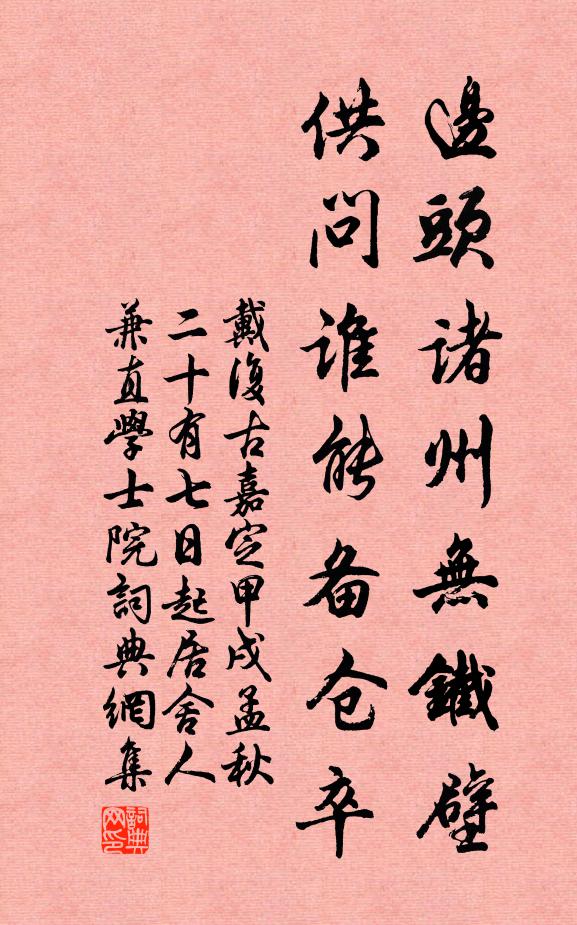 邊頭諸州無鐵壁
供問誰能备仓卒
戴復古嘉定甲戌孟秋
二十有七日起居舍人
兼直學士院詞典網集
詞典網印